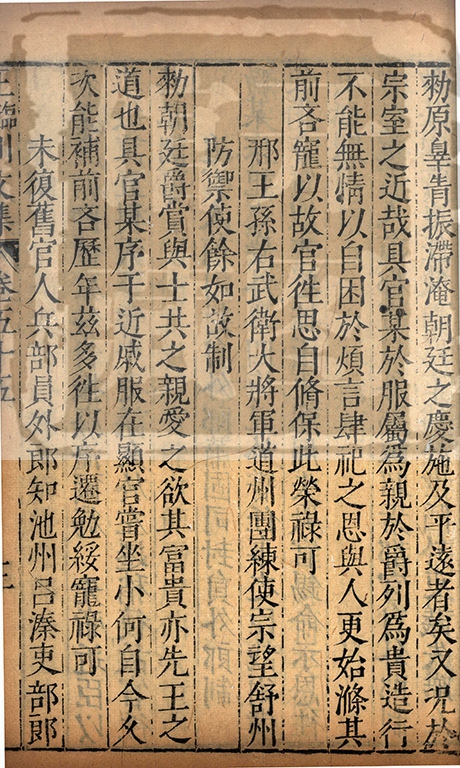 勑原辠眚振滯淹朝廷之慶施及乎遠者矣又況於
宗室之近哉具官某於服屬爲親於爵列爲貴造行
不能無情以自困於煩言肆祀之恩與人更始滌其
前吝寵以故官徃思自脩保此榮祿可
邢王孫右武衛大將軍道州團練使宗望舒州
防禦使餘如故制
勑朝廷爵賞與士共之親愛之欲其富貴亦先王之
道也具官某序于近戚服在顯官嘗坐小何自今久
次能補前吝歷年茲多徃以序遷勉綏寵祿可
未復舊官人兵部員外郎知池州呂溱吏部郎
王臨川文集 卷五十五 十三